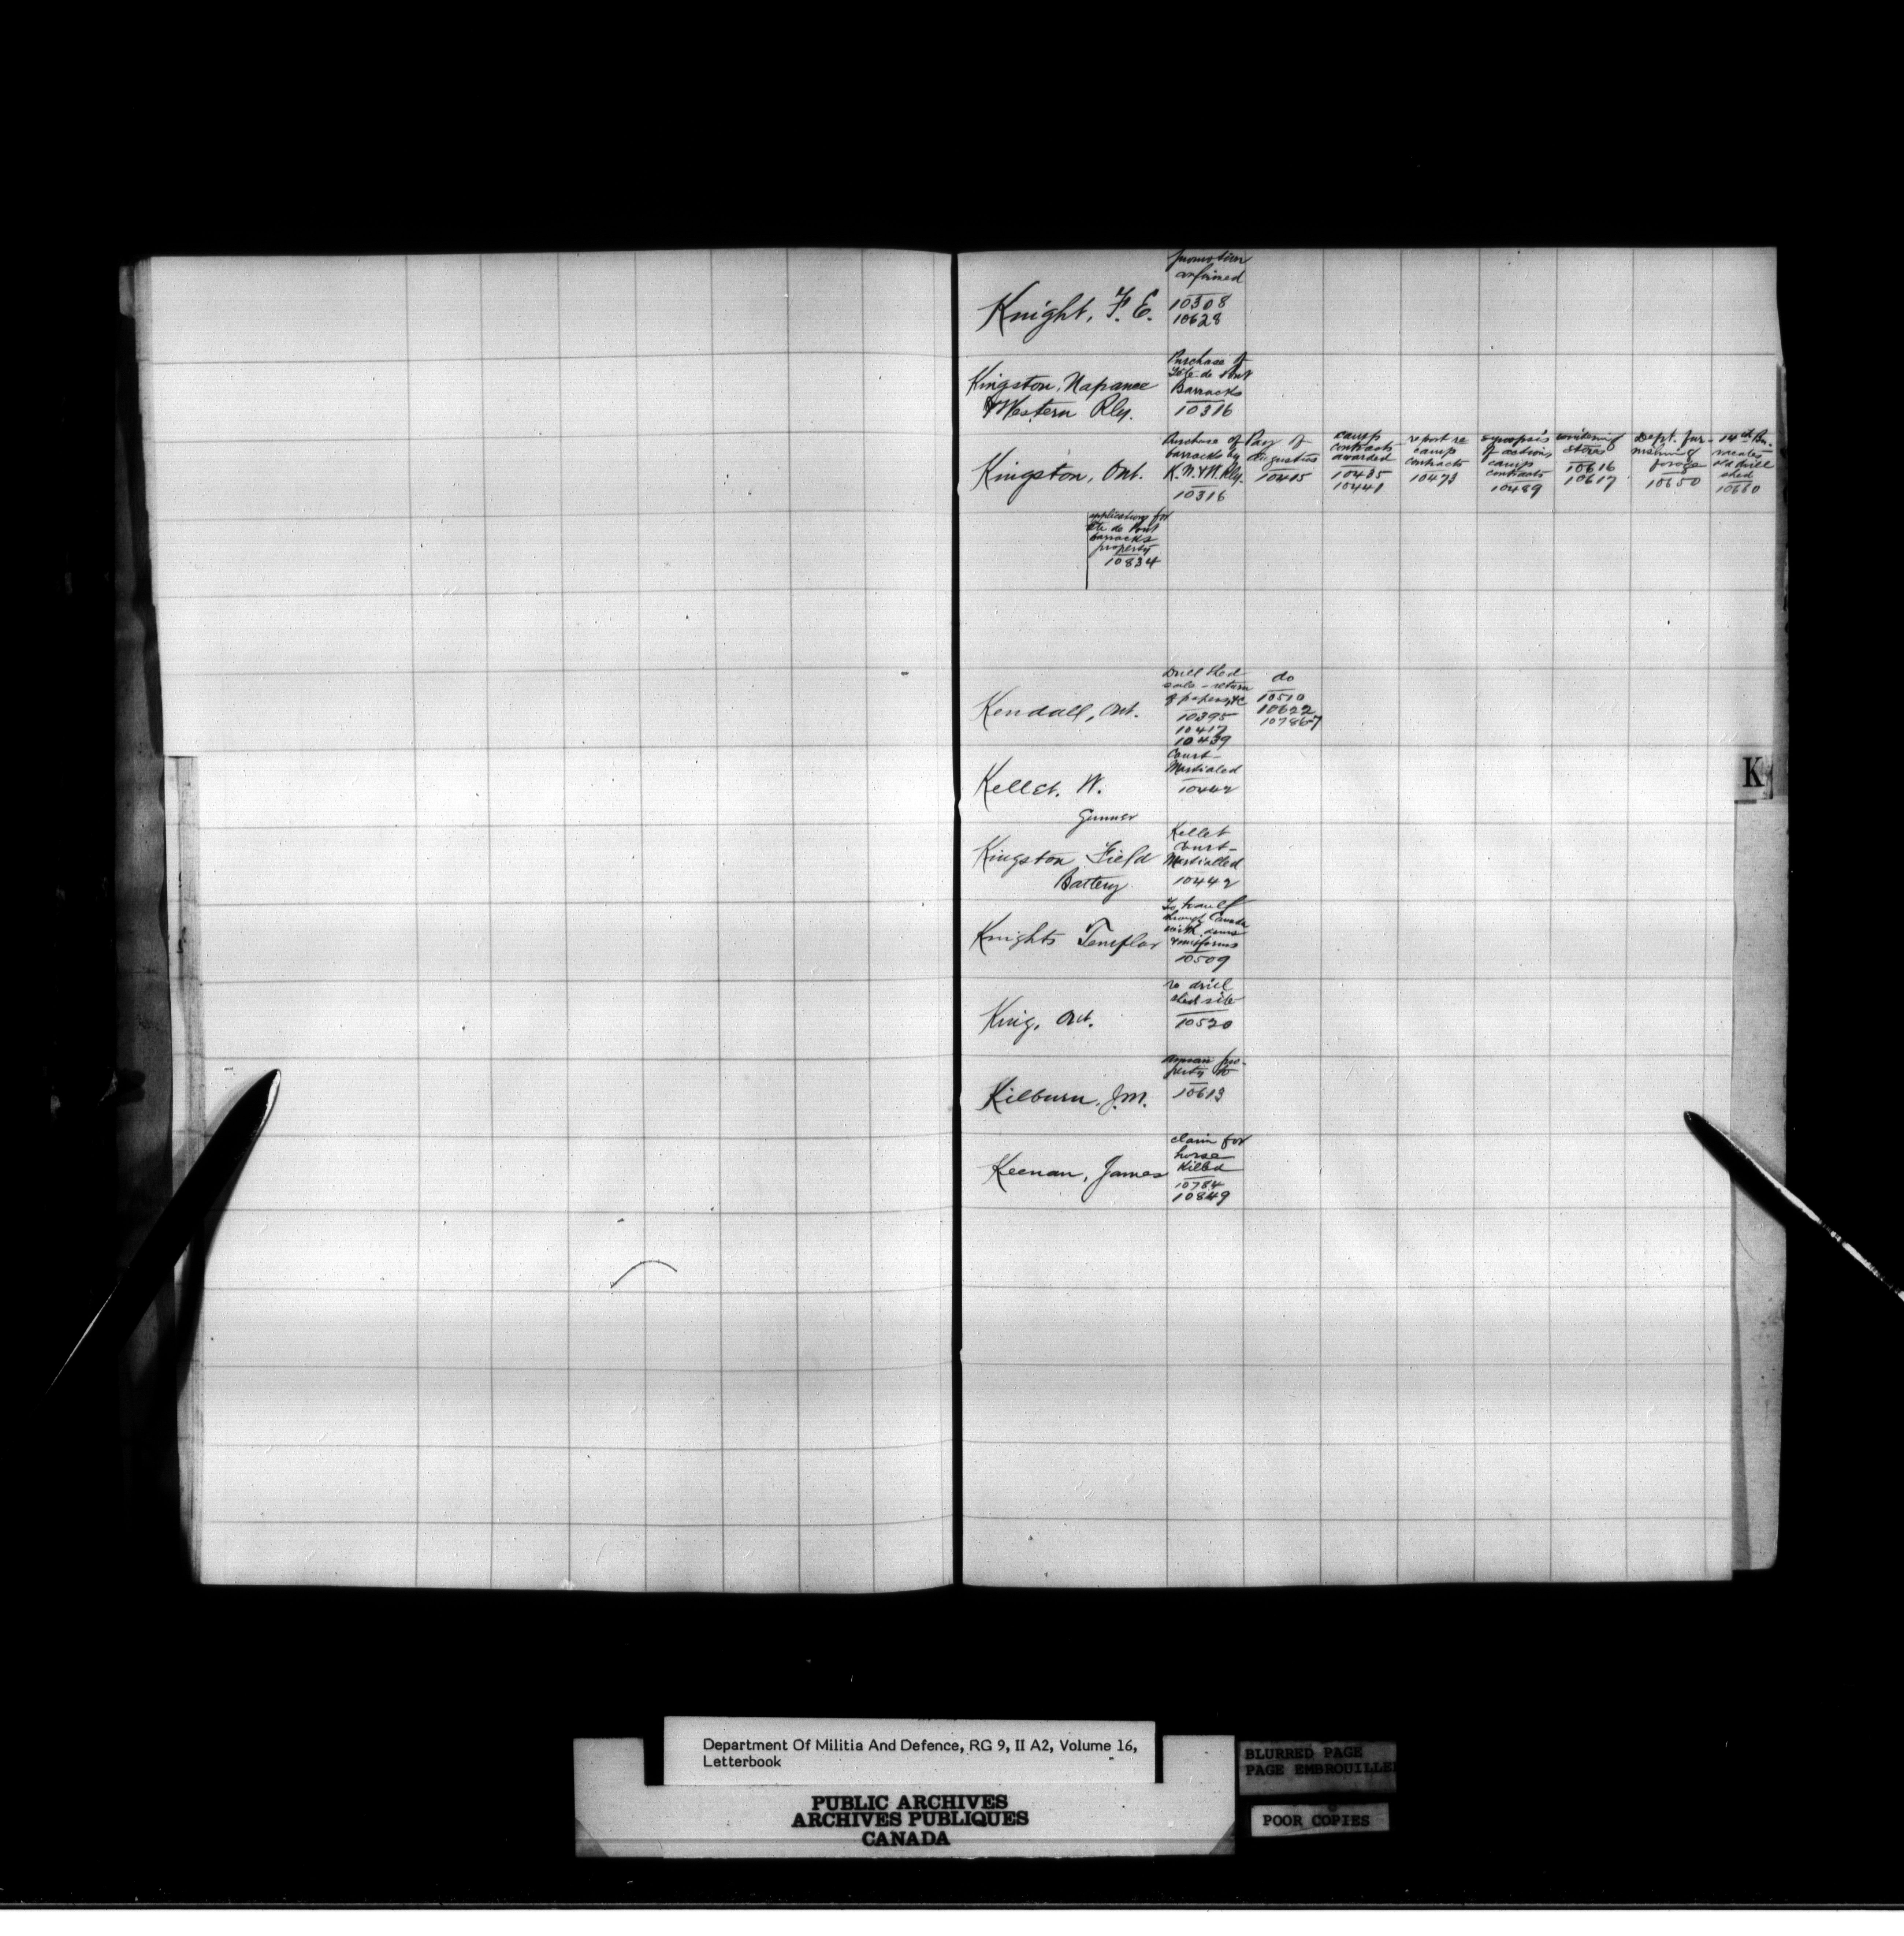 promotion
Knight, F. E.
10308
10628
Purchase of
Tête de Pont
Barracks
10316
Kingston, Napanee
& Western Rly.
Kingston, Ont.
Purchase of
barracks by
K. N. & W. Rly.
10316
Pay of
Augustus
10415
camp
contracts
awarded
10435
10441
report re
camp
contracts
10473
synopsis
of actions
camp
contracts
10489
stores
10616
10617
Dept. fur-
nishing
forage
10650
14th Bn.
vacates
old drill
shed
10660
applications for
Tête de Pont
barracks
property
10834
Kendall, Ont.
Drill Shed
sale - return
of papers, &c
10395
10417
10439
do
10510
10622
10786-7
Kellet. W.
Gunner
Court-
Martialed
10442
Kingston Field
Battery
Kellet
Court-
Martialled
10442
Knights Templar
To travel
through Canada
with arms
& uniforms
10509
King, Ont.
re drill
shed site
10520
Kilburn, J. M.
perty to
10613
Keenan, James
claim for
horse
killed
10784
10849
K
Department Of Militia And Defence, RG 9, II A2, Volume 16,
Letterbook
PUBLIC ARCHIVES
ARCHIVES PUBLIQUES
CANADA
BLURRED PAGE
PAGE EMBROUILLE
POOR COPIES